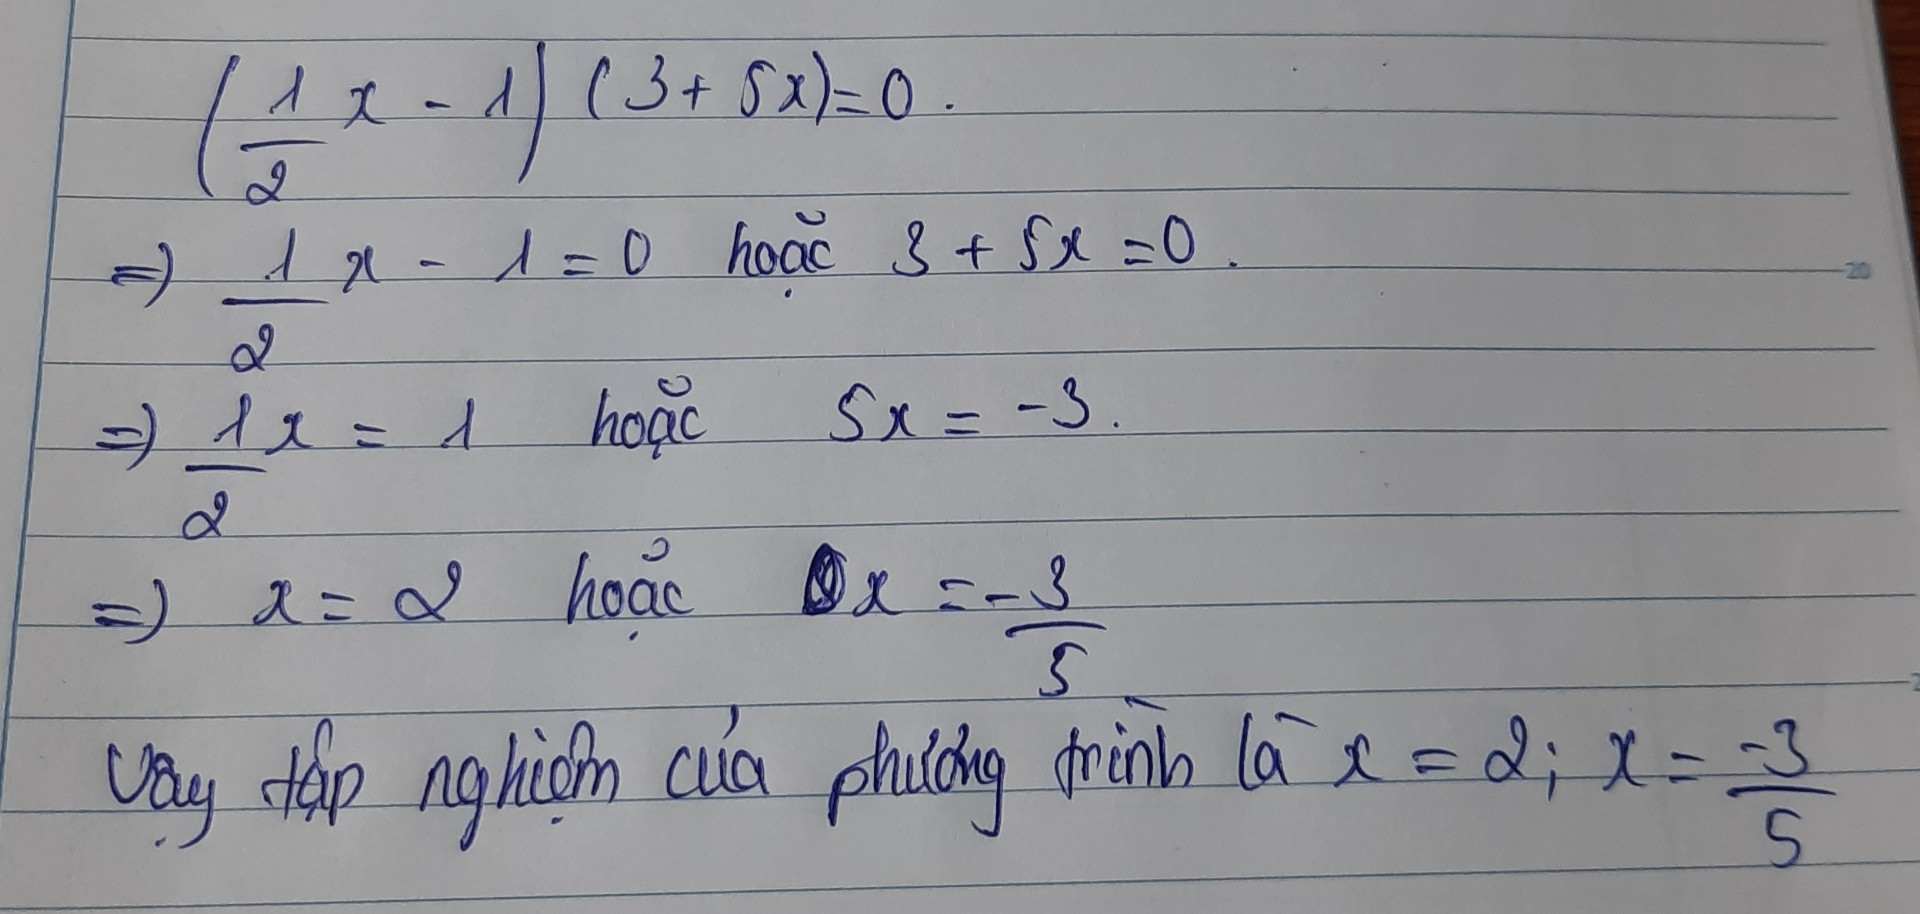 (1/2 x - 1) (3 + 5x) = 0.
=> 1/2 x - 1 = 0 hoặc 3 + 5x = 0.
=> 1/2 x = 1 hoặc 5x = -3.
=> x = 2 hoặc x = -3/5
Vậy tập nghiệm của phương trình là x = 2; x = -3/5
20